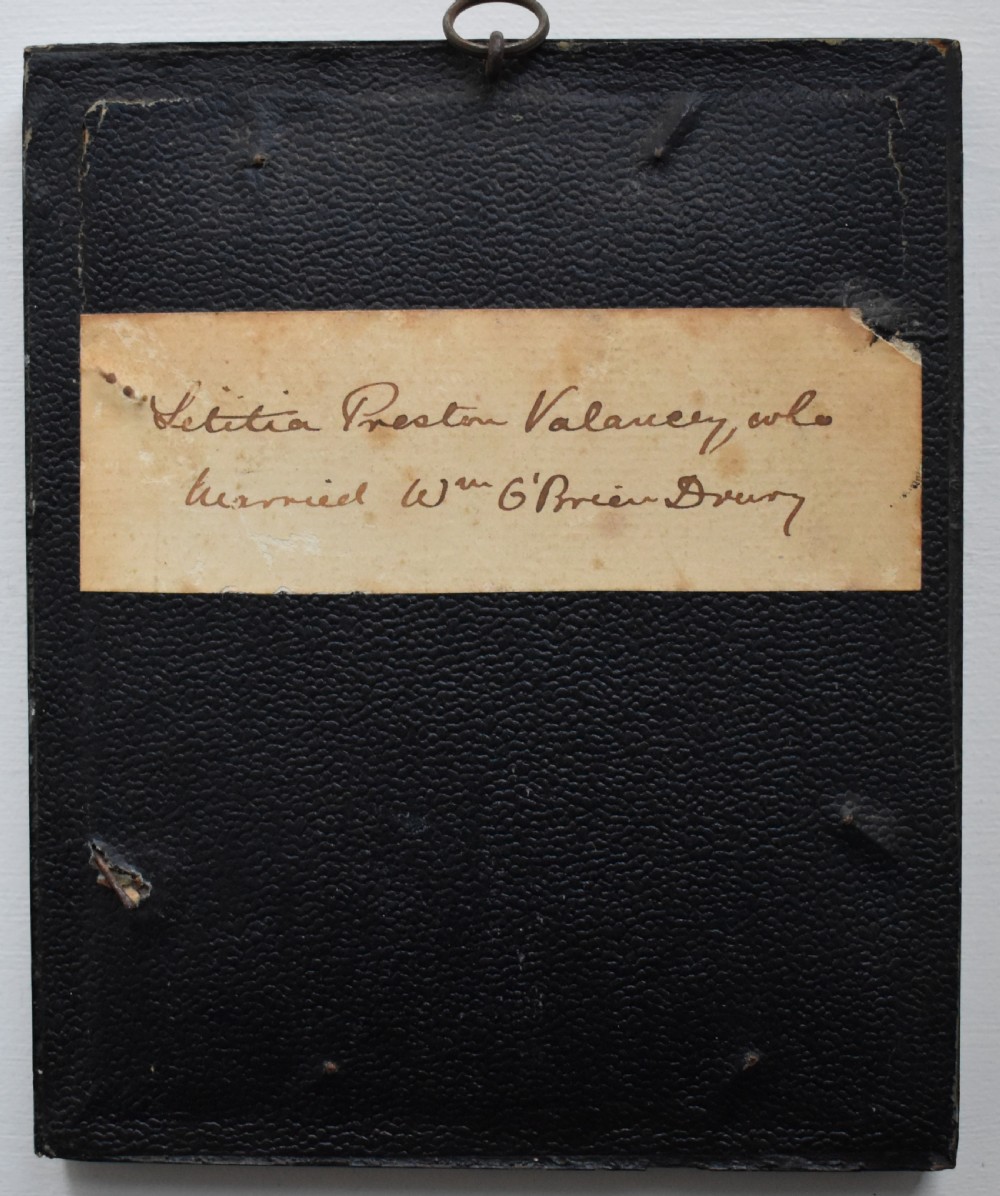 Letitia Preston Valancey, who
Married Wm O'Brien Drury